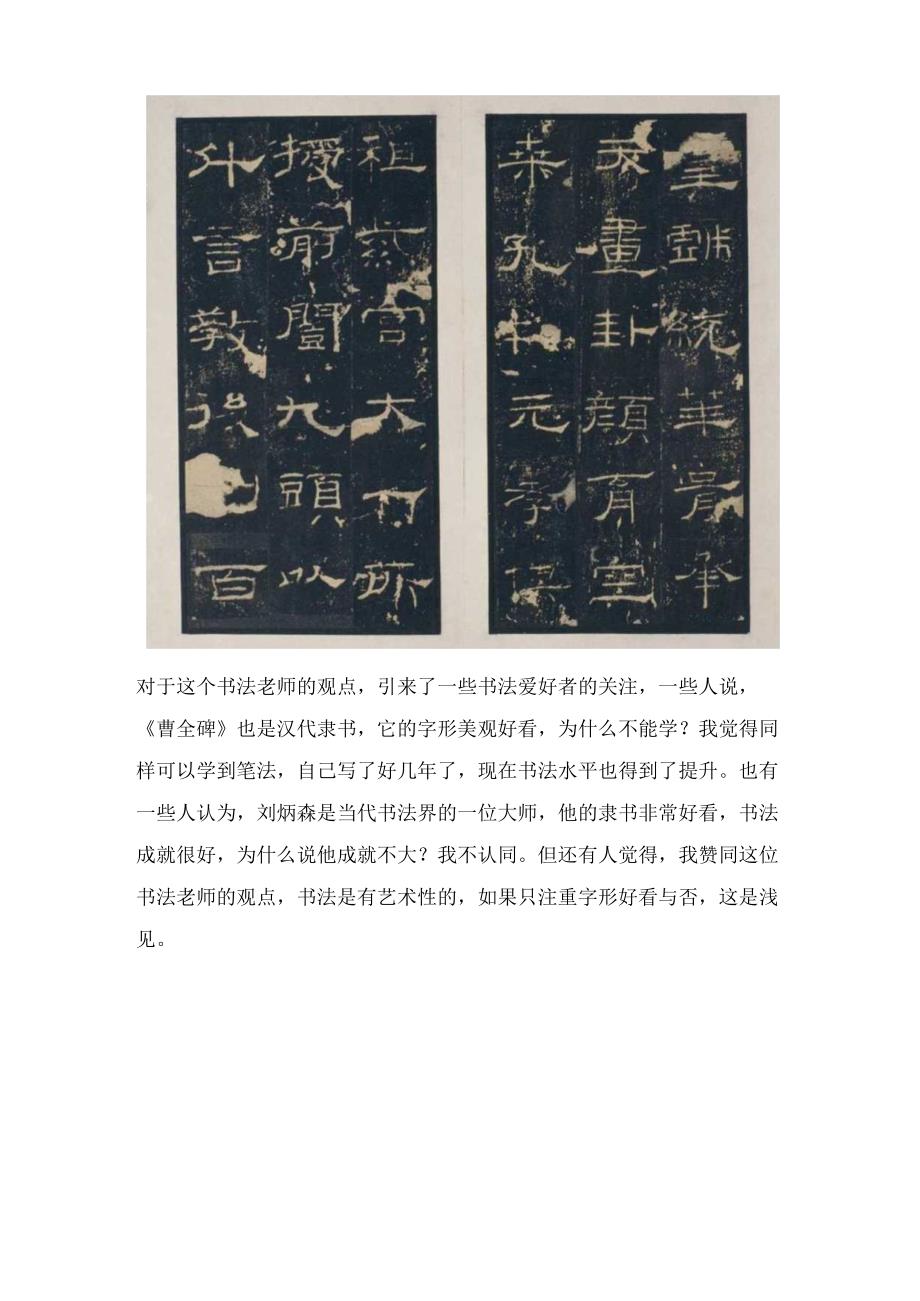 皇戲統華胥承
天畫卦顏育空
桑孔制元孝俱
祖紫宮大一所
授前闓九頭以
什言教後百
对于这个书法老师的观点，引来了一些书法爱好者的关注，一些人说，
《曹全碑》也是汉代隶书，它的字形美观好看，为什么不能学？我觉得同
样可以学到笔法，自己写了好几年了，现在书法水平也得到了提升。也有
一些人认为，刘炳森是当代书法界的一位大师，他的隶书非常好看，书法
成就很好，为什么说他成就不大？我不认同。但还有人觉得，我赞同这位
书法老师的观点，书法是有艺术性的，如果只注重字形好看与否，这是浅
见。